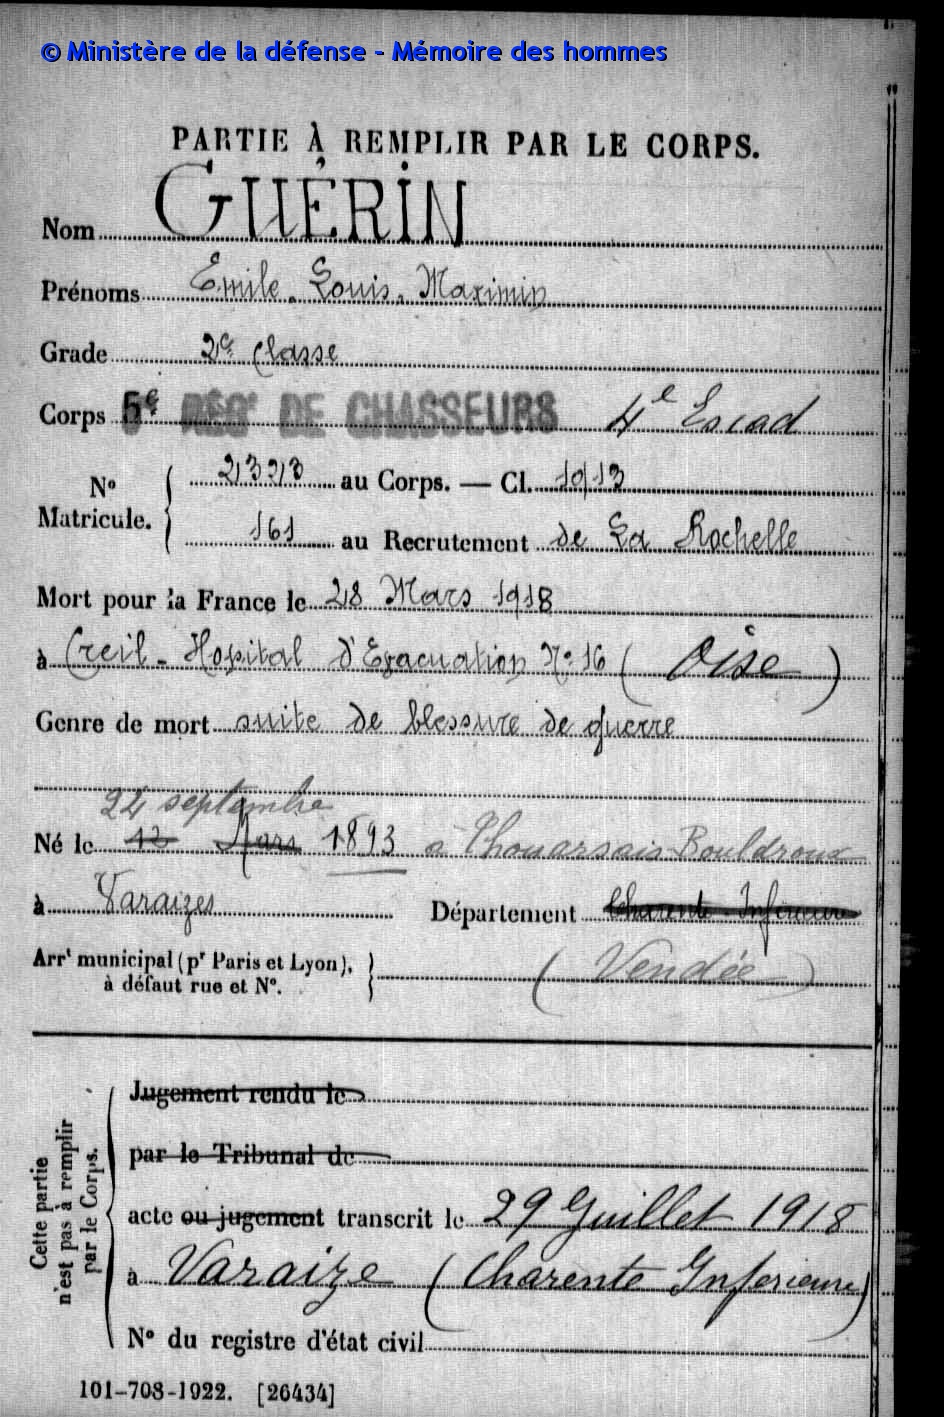 © Ministère de la défense - Mémoire des hommes
PARTIE À REMPLIR PAR LE CORPS.
Nom GUÉRIN
Prénoms Emile. Louis. Maximin
Grade 2e classe
Corps 5e RÉGt DE CHASSEURS 4e Escad
No Matricule. { 2323 au Corps. — Cl. 1913
161 au Recrutement de La Rochelle
Mort pour la France le 28 Mars 1918
à Creil - Hopital d'Evacuation No 16 (Oise)
Genre de mort suite de blessure de guerre
24 septembre
Né le 12 Mars 1893 à Thouarsais-Bouldroux
à Varaizes Département Charente-Inférieure
Arrt municipal (pr Paris et Lyon), à défaut rue et No. } (Vendée)
Cette partie n'est pas à remplir par le Corps.
Jugement rendu le
par le Tribunal de
acte ou jugement transcrit le 29 Juillet 1918
à Varaize (Charente Inferieure)
No du registre d'état civil
101-708-1922. [26434]